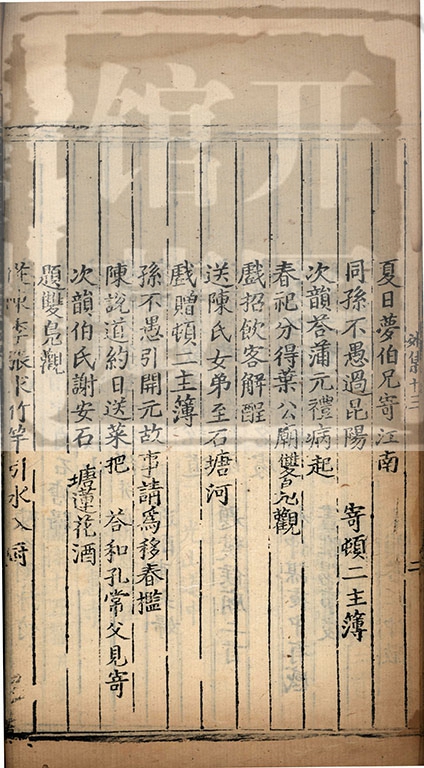 外集十三
二
夏日夢伯兄寄江南
同孫不愚過昆陽　寄頓二主簿
次韻答蒲元禮病起
春祀分得葉公廟雙鳧觀
戲招飲客解酲
送陳氏女弟至石塘河
戲贈頓二主簿
孫不愚引開元故事請為移春檻
陳說道約日送菜把　答和孔常父見寄
次韻伯氏謝安石塘蓮花酒
題雙鳧觀
從陳季張求竹竿引水入廚
开
馆